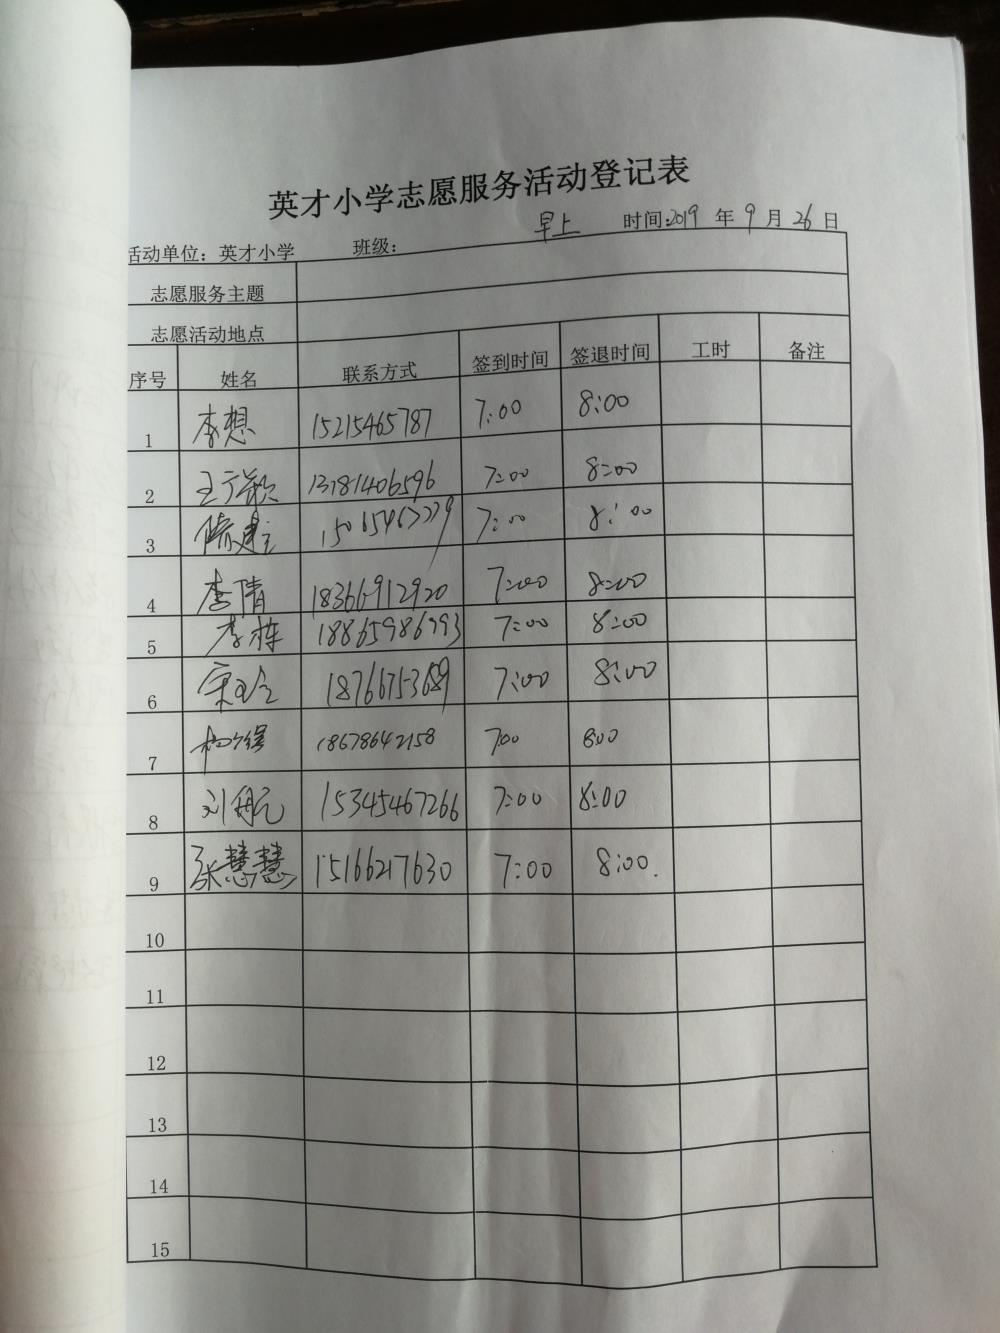 英才小学志愿服务活动登记表
早上 时间:2019 年 9 月 26 日
活动单位：英才小学 班级：
志愿服务主题
志愿活动地点
序号 姓名 联系方式 签到时间 签退时间 工时 备注
1 李想 15215465787 7:00 8:00
2 13181406596 7:00 8:00
3 7:00 8:00
4 李倩 18366912920 7:00 8:00
5 李栋 7:00 8:00
6 18766753689 7:00 8:00
7 18678642158 7:00 8:00
8 刘航元 15345467266 7:00 8:00
9 张慧慧 15166217630 7:00 8:00.
10
11
12
13
14
15